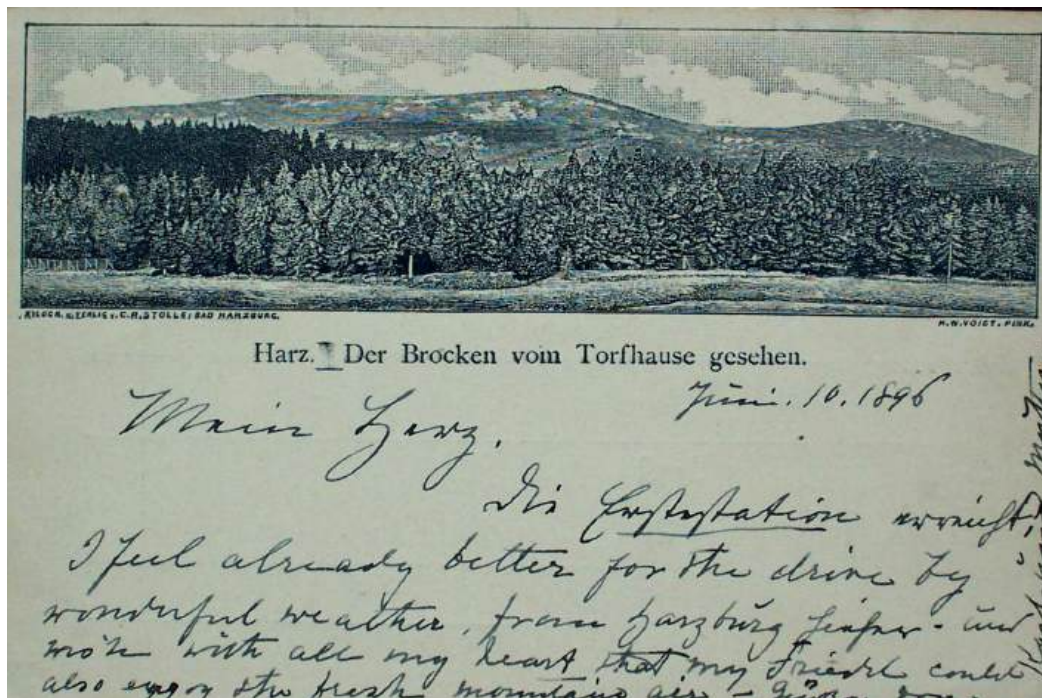 VERLAG v. C.R. STOLLE, BAD HARZBURG.
H.W. VOIGT. PINX.
Harz. Der Brocken vom Torfhause gesehen.
Juni. 10. 1896
Mein Herz.
Die Erstestation erreicht!
I feel already better for the drive by
wonderful weather, from Harzburg hieher - und
with all my heart that my Friedl could
also enjoy the fresh mountains air -